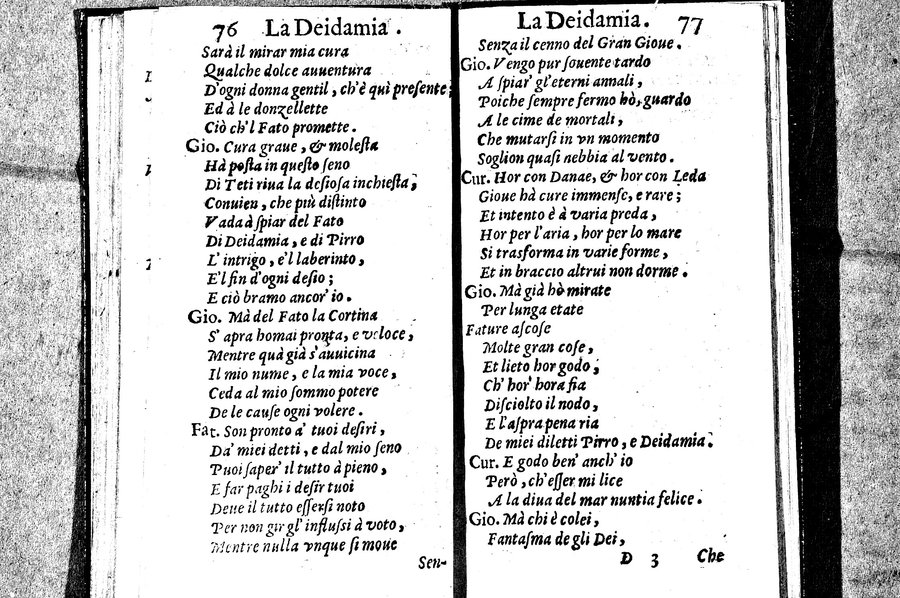 76 La Deidamia.
Sarà il mirar mia cura
Qualche dolce auuentura
D'ogni donna gentil, ch'è quì presente;
Ed à le donzellette
Ciò ch'l Fato promette.
Gio. Cura graue, & molesta
Hà posta in questo seno
Di Teti riua la desiosa inchiesta;
Conuien, che più distinto
Vada à spiar del Fato
Di Deidamia, e di Pirro
L'intrigo, e'l laberinto,
E'l fin d'ogni desio;
E ciò bramo ancor' io.
Gio. Mà del Fato la Cortina
S' apra homai pronta, e veloce,
Mentre quà già s'auuicina
Il mio nume, e la mia voce,
Ceda al mio sommo potere
De le cause ogni volere.
Fat. Son pronto a' tuoi desiri,
Da' miei detti, e dal mio seno
Puoi saper' il tutto à pieno,
E far paghi i desir tuoi
Deue il tutto essersi noto
Per non gir gl' influssi à voto,
Mentre nulla vnque si moue
Sen-
La Deidamia. 77
Senza il cenno del Gran Gioue.
Gio. Vengo pur souente tardo
A spiar' gl'eterni annali,
Poiche sempre fermo hò, guardo
A le cime de mortali,
Che mutarsi in vn momento
Soglion quasi nebbia al vento.
Cur. Hor con Danae, & hor con Leda
Gioue hà cure immense, e rare;
Et intento è à varia preda,
Hor per l'aria, hor per lo mare
Si trasforma in varie forme,
Et in braccio altrui non dorme.
Gio. Mà già hò mirate
Per lunga etate
Fature ascose
Molte gran cose,
Et lieto hor godo;
Ch' hor' hora fia
Disciolto il nodo,
E l'aspra pena ria
De miei diletti Pirro, e Deidamia.
Cur. E godo ben' anch' io
Però, ch'esser mi lice
A la diua del mar nuntia felice.
Gio. Mà chi è colei,
Fantasma de gli Dei,
D 3 Che